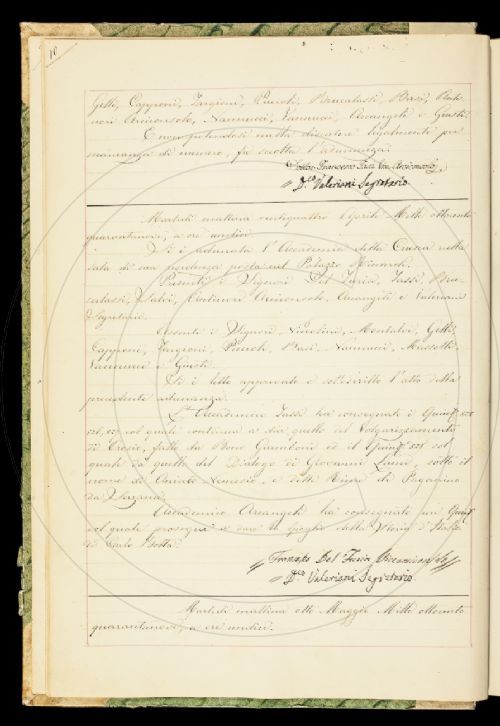 10
Gelli, Capponi, Targioni, Puccioli, Brucalassi, Basi,
Arciconsolo, Nannucci, Vannucci, Arcangeli e Giusti.
E non potendosi nulla discutere legalmente, per
mancanza di numero, fu sciolta l'adunanza.
Francesco Del Furia Vice Arciconsolo
D.co Valeriani Segretario
Martedì mattina ventiquattro Aprile Mille ottocento
quarantanove, a ore undici.
Si è adunata l'Accademia della Crusca nella
sala di sua residenza posta nel Palazzo Riccardi.
Presenti i Signori Del Furia, Tassi, Bru-
calassi, Salvi, Arciconsolo, Arcangeli e Valeriani
Segretario.
Assenti i Signori Niccolini, Montalvi, Gelli,
Capponi, Targioni, Puccioli, Basi, Nannucci, Masselli,
Vannucci e Giusti.
Si è letto approvato e sottoscritto l'atto della
precedente adunanza.
L'Accademico Tassi ha consegnato i
nei quali continua a dar quello del Volgarizzamento
di Orosio, fatto da Bono Giamboni ed il nel
quale dà quello del Dialogo di Giovanni sotto il
nome di e delle Rime di Pagagino
da Sarzana.
L'Accademico Arcangeli ha consegnato un
nel quale prosegue a dare lo spoglio della Storia d'Italia
di Carlo Botta.
Francesco Del Furia Vice Arciconsolo
D.co Valeriani Segretario
Martedì mattina otto Maggio Mille ottocento
quarantanove, a ore undici.